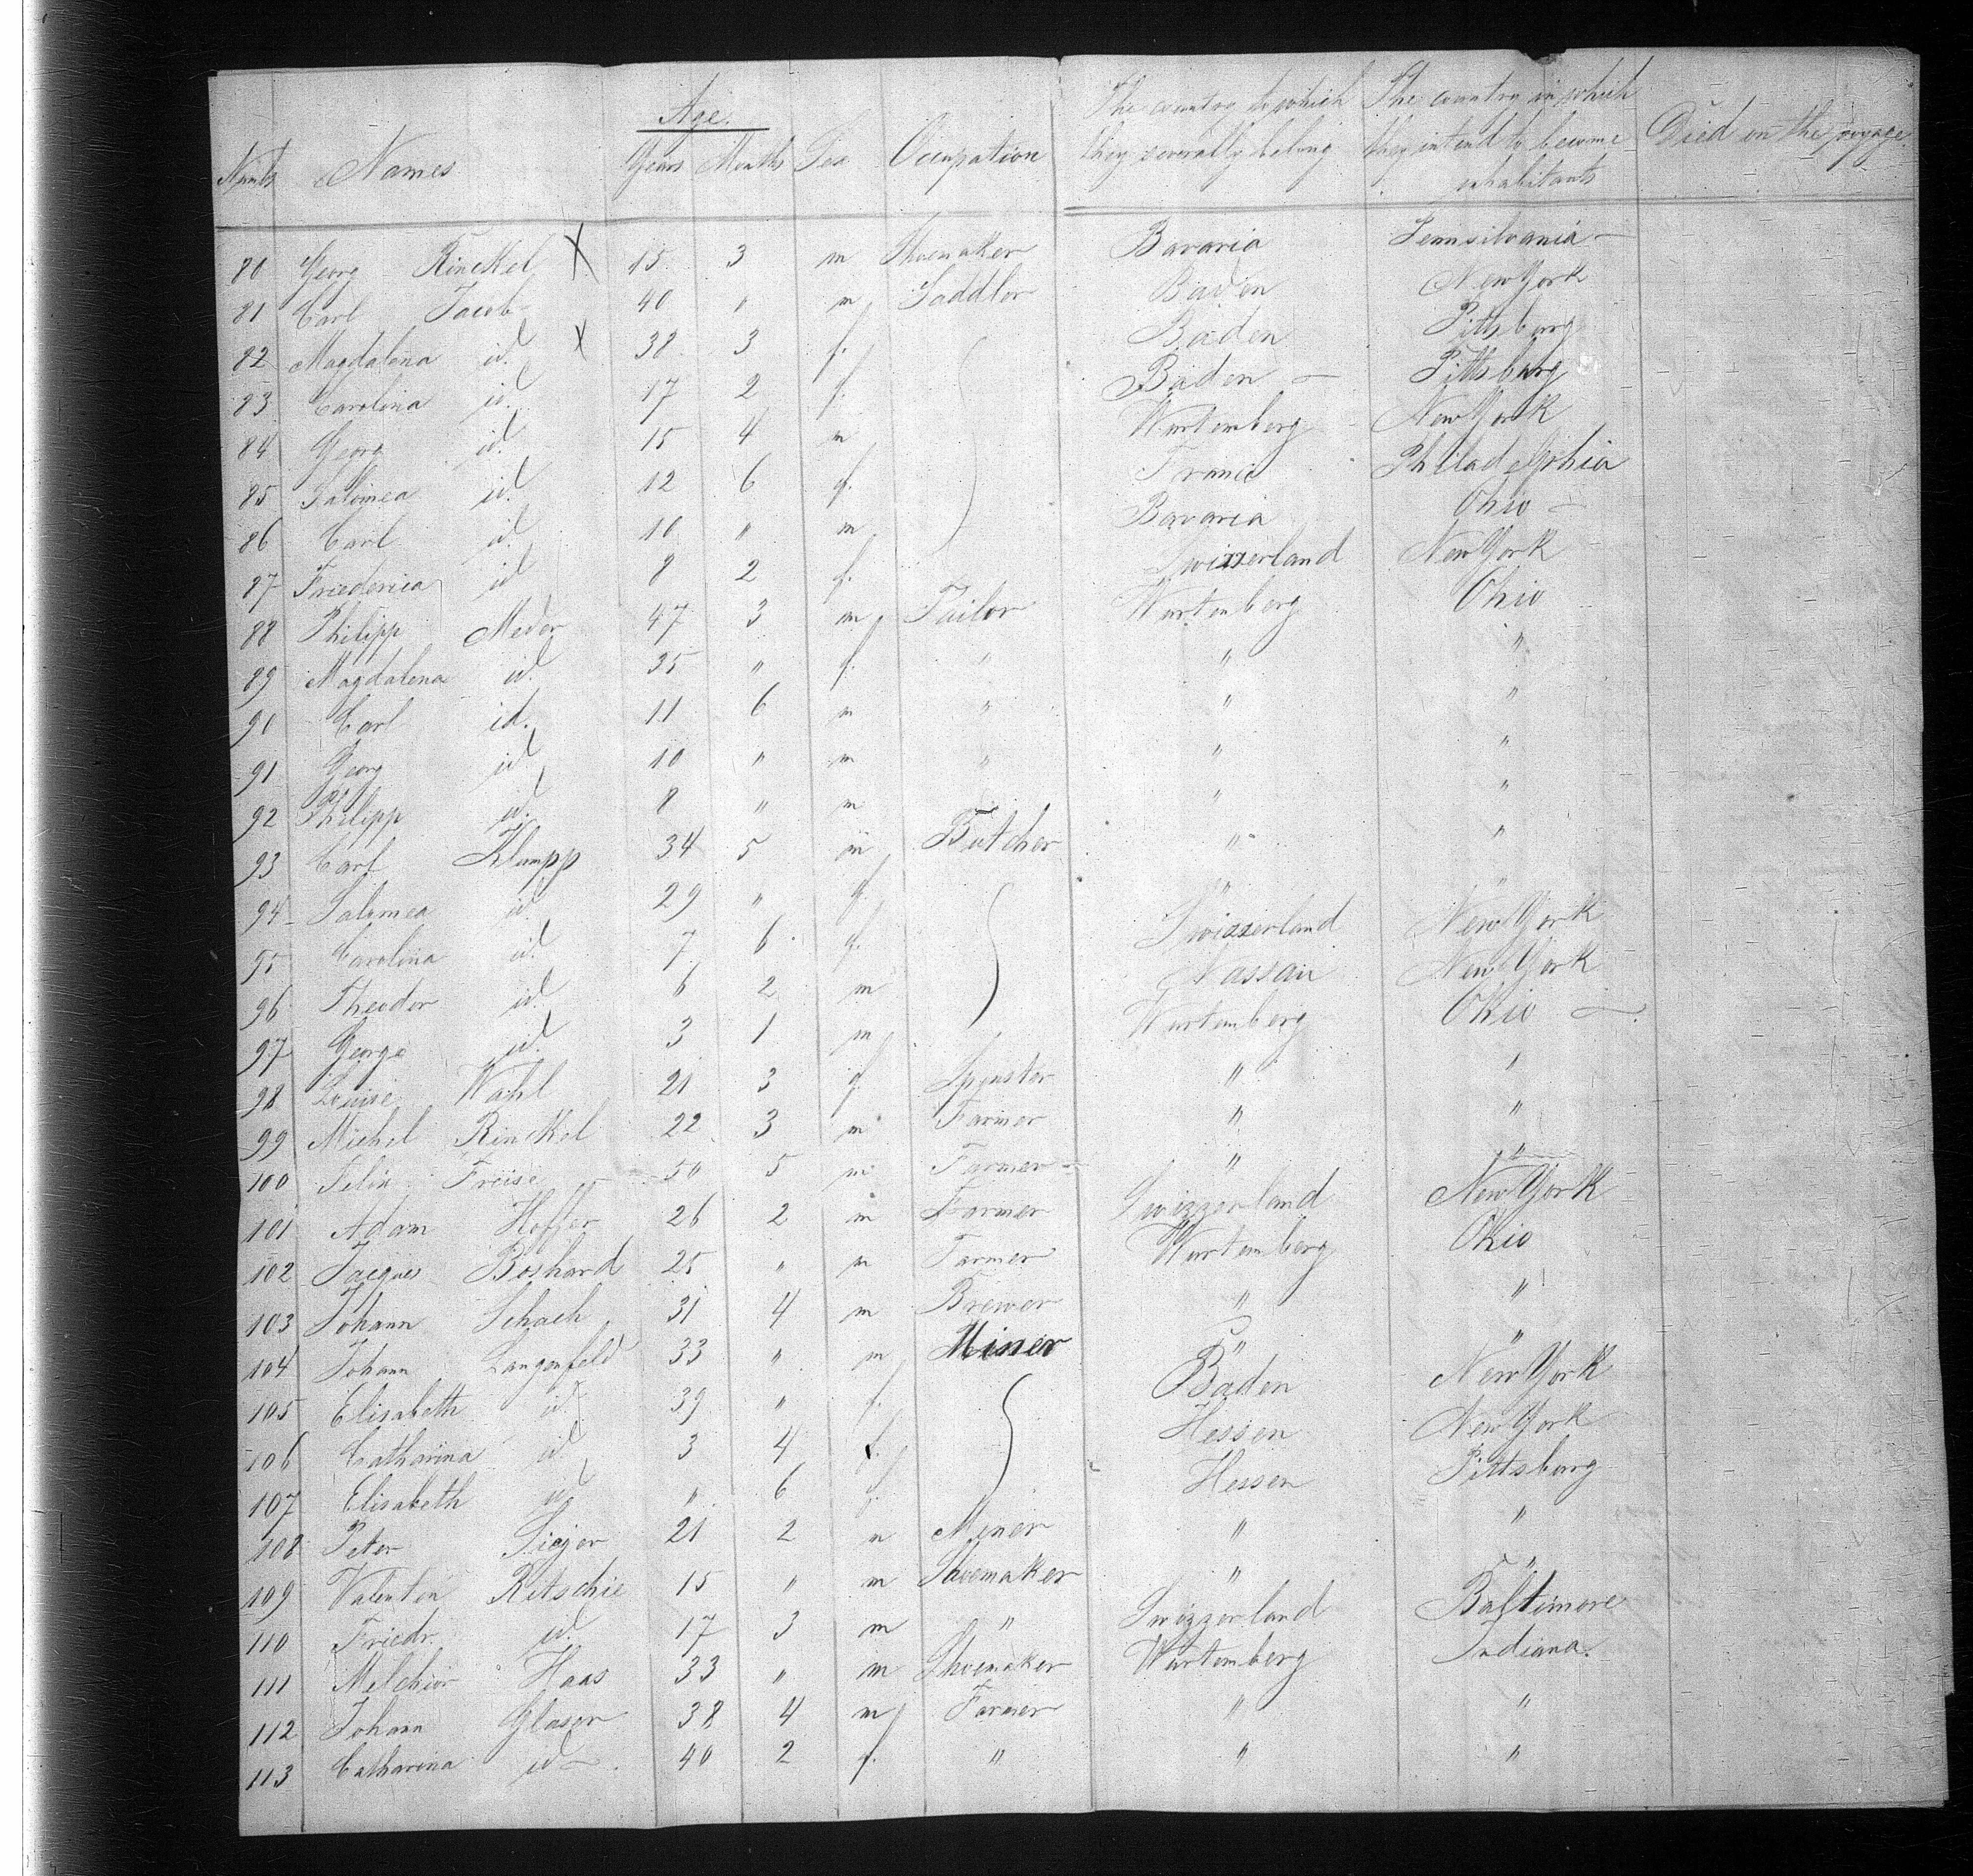 Age.
Numb. Names Years Months Sex Occupation The country to which they severally belong The country in which they intend to become inhabitants Died on the voyage.
80 Georg Rinckel X 15 3 m Shoemaker Bavaria Pennsilvania -
81 Carl Jacob 40 " m Saddler Baden New York
82 Magdalena id. x 38 3 f. Baden Pittsburg
83 Carolina id. 17 2 f. Baden - Pittsburg
84 Georg id. 15 4 m Wurtemberg New York
85 Salomea id. 12 6 f. France Philadelphia
86 Carl id. 10 " m Bavaria Ohio -
87 Friederica id 8 2 f. Swizzerland New York
88 Philipp Meder 47 3 m Tailor Wurtemberg Ohio
89 Magdalena id. 35 " f. " " "
90 Carl id. 11 6 m " " "
91 Georg id. 10 " m " " "
92 Philipp id. 8 " m " "
93 Carl Klumpp 34 5 m Butcher " "
94 Salomea id. 29 " f. " "
95 Carolina id. 7 6 f. Swizzerland New York
96 Theodor id. 6 2 m Nassau New York
97 George id. 3 1 m Wurtemberg Ohio -
98 Louise Wahl 21 3 f. Spinster " "
99 Michel Rinckel 22 3 m Farmer " "
100 Felix Freise 50 5 m Farmer " "
101 Adam Hoffer 26 2 m Farmer Swizzerland New York
102 Jacques Boshard 25 " m Farmer Wurtemberg Ohio
103 Johann Schach 31 4 m Brewer " "
104 Johann Langenfeld 33 " m Miner " "
105 Elisabeth id. 39 " f. Baden New York
106 Catharina id. 3 4 f. Hessen New York
107 Elisabeth id " 6 f. Hessen Pittsburg
108 Peter 21 2 m Miner " "
109 Valentin Ritschie 15 " m Shoemaker " "
110 Friedr. id. 17 3 m " Swizzerland Baltimore
111 Melchior Haas 33 " m Shoemaker Wurtemberg Indiana.
112 Johann Glaser 38 4 m Farmer " "
113 Catharina id 40 2 f. " " "